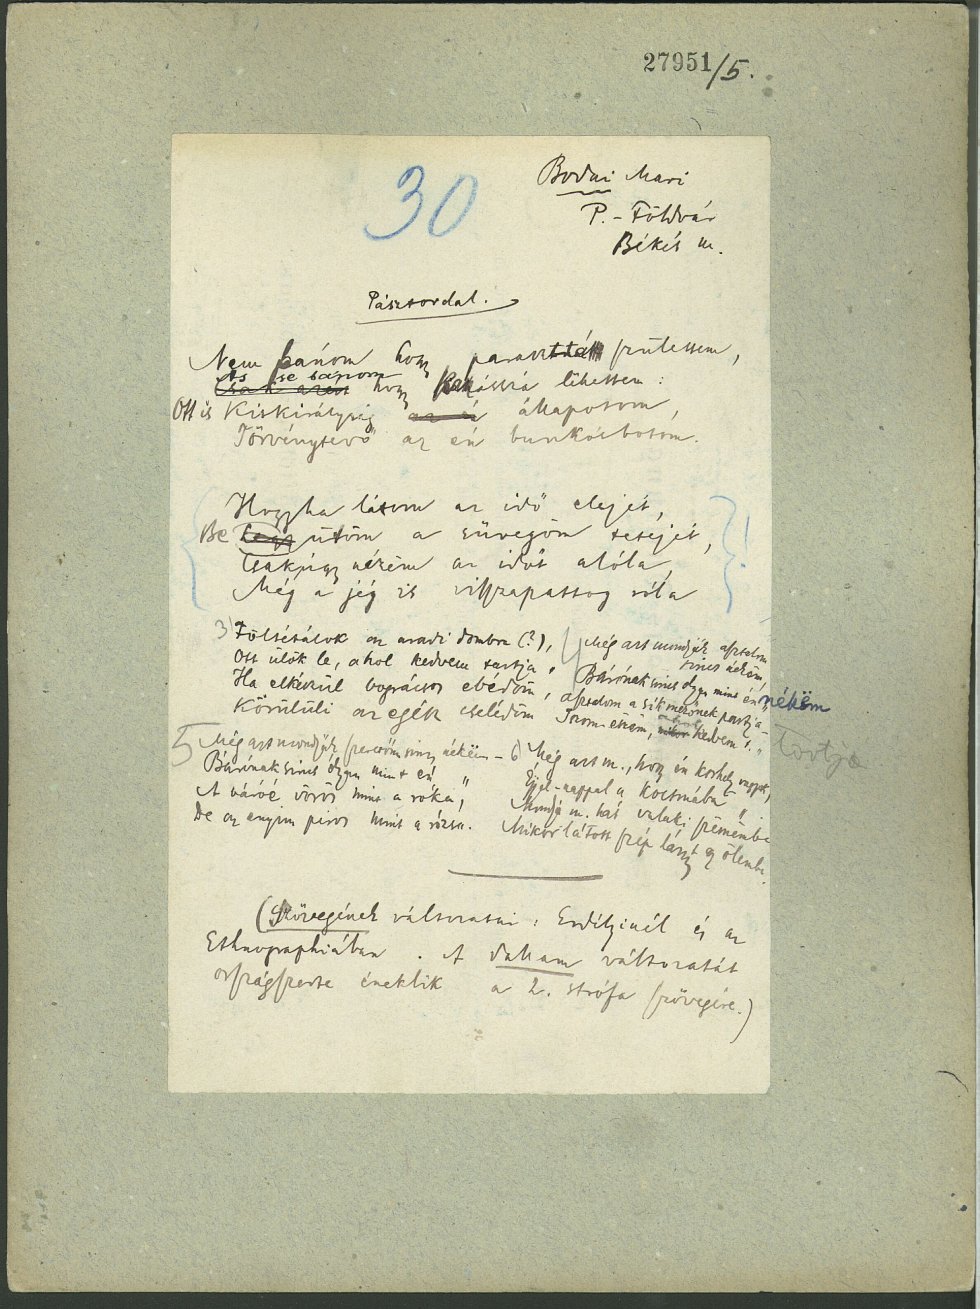 27951/5.
30
Bodai Mari
P.-Földvár
Békés m.
Pásztordal.
Nem bánom hogy paraszttá szülessem,
Azt se bánom
hogy kanásszá lëhessem:
Ott is Kiskirályság az én állapotom,
Törvénytevő az én bunkósbotom.
Hogyha látom az idő elejét,
Be ütöm a süvegöm tetejét,
Csakúgy nézëm az időt alóla,
Még a jég is visszapattog róla
!
3 Fölsétálok az aradi dombra (?),
Ott ülök le, ahol kedvem tartja,
Ha elkészül bográcsos ebédöm,
Körülüli az egész cselédöm
4 Még azt mondják asztalom
sincs nékëm,
Bárónak sincs olyan mint én nékëm
asztalom a sik mezőnek partja –
Iszom ëszëm, mikor ahol kedvem t. "
tartja
5 Még azt mondják szeretőm sincs nékëm –
Bárónak sincs olyan mint én "
A báróé vörös mint a róka,
De az enyim piros mint a rózsa.
6) Még azt m., hogy én korhely vagyok,
Éjjel-nappal a kocsmába "
Mondja m. hát valaki szëmëmbe
Mikor látott szép lányt az ölembe.
(Szövegének változatai: Erdélyinél és az
Ethnographiában. A dallam változatát
országszerte éneklik a 2. strófa szövegére.)